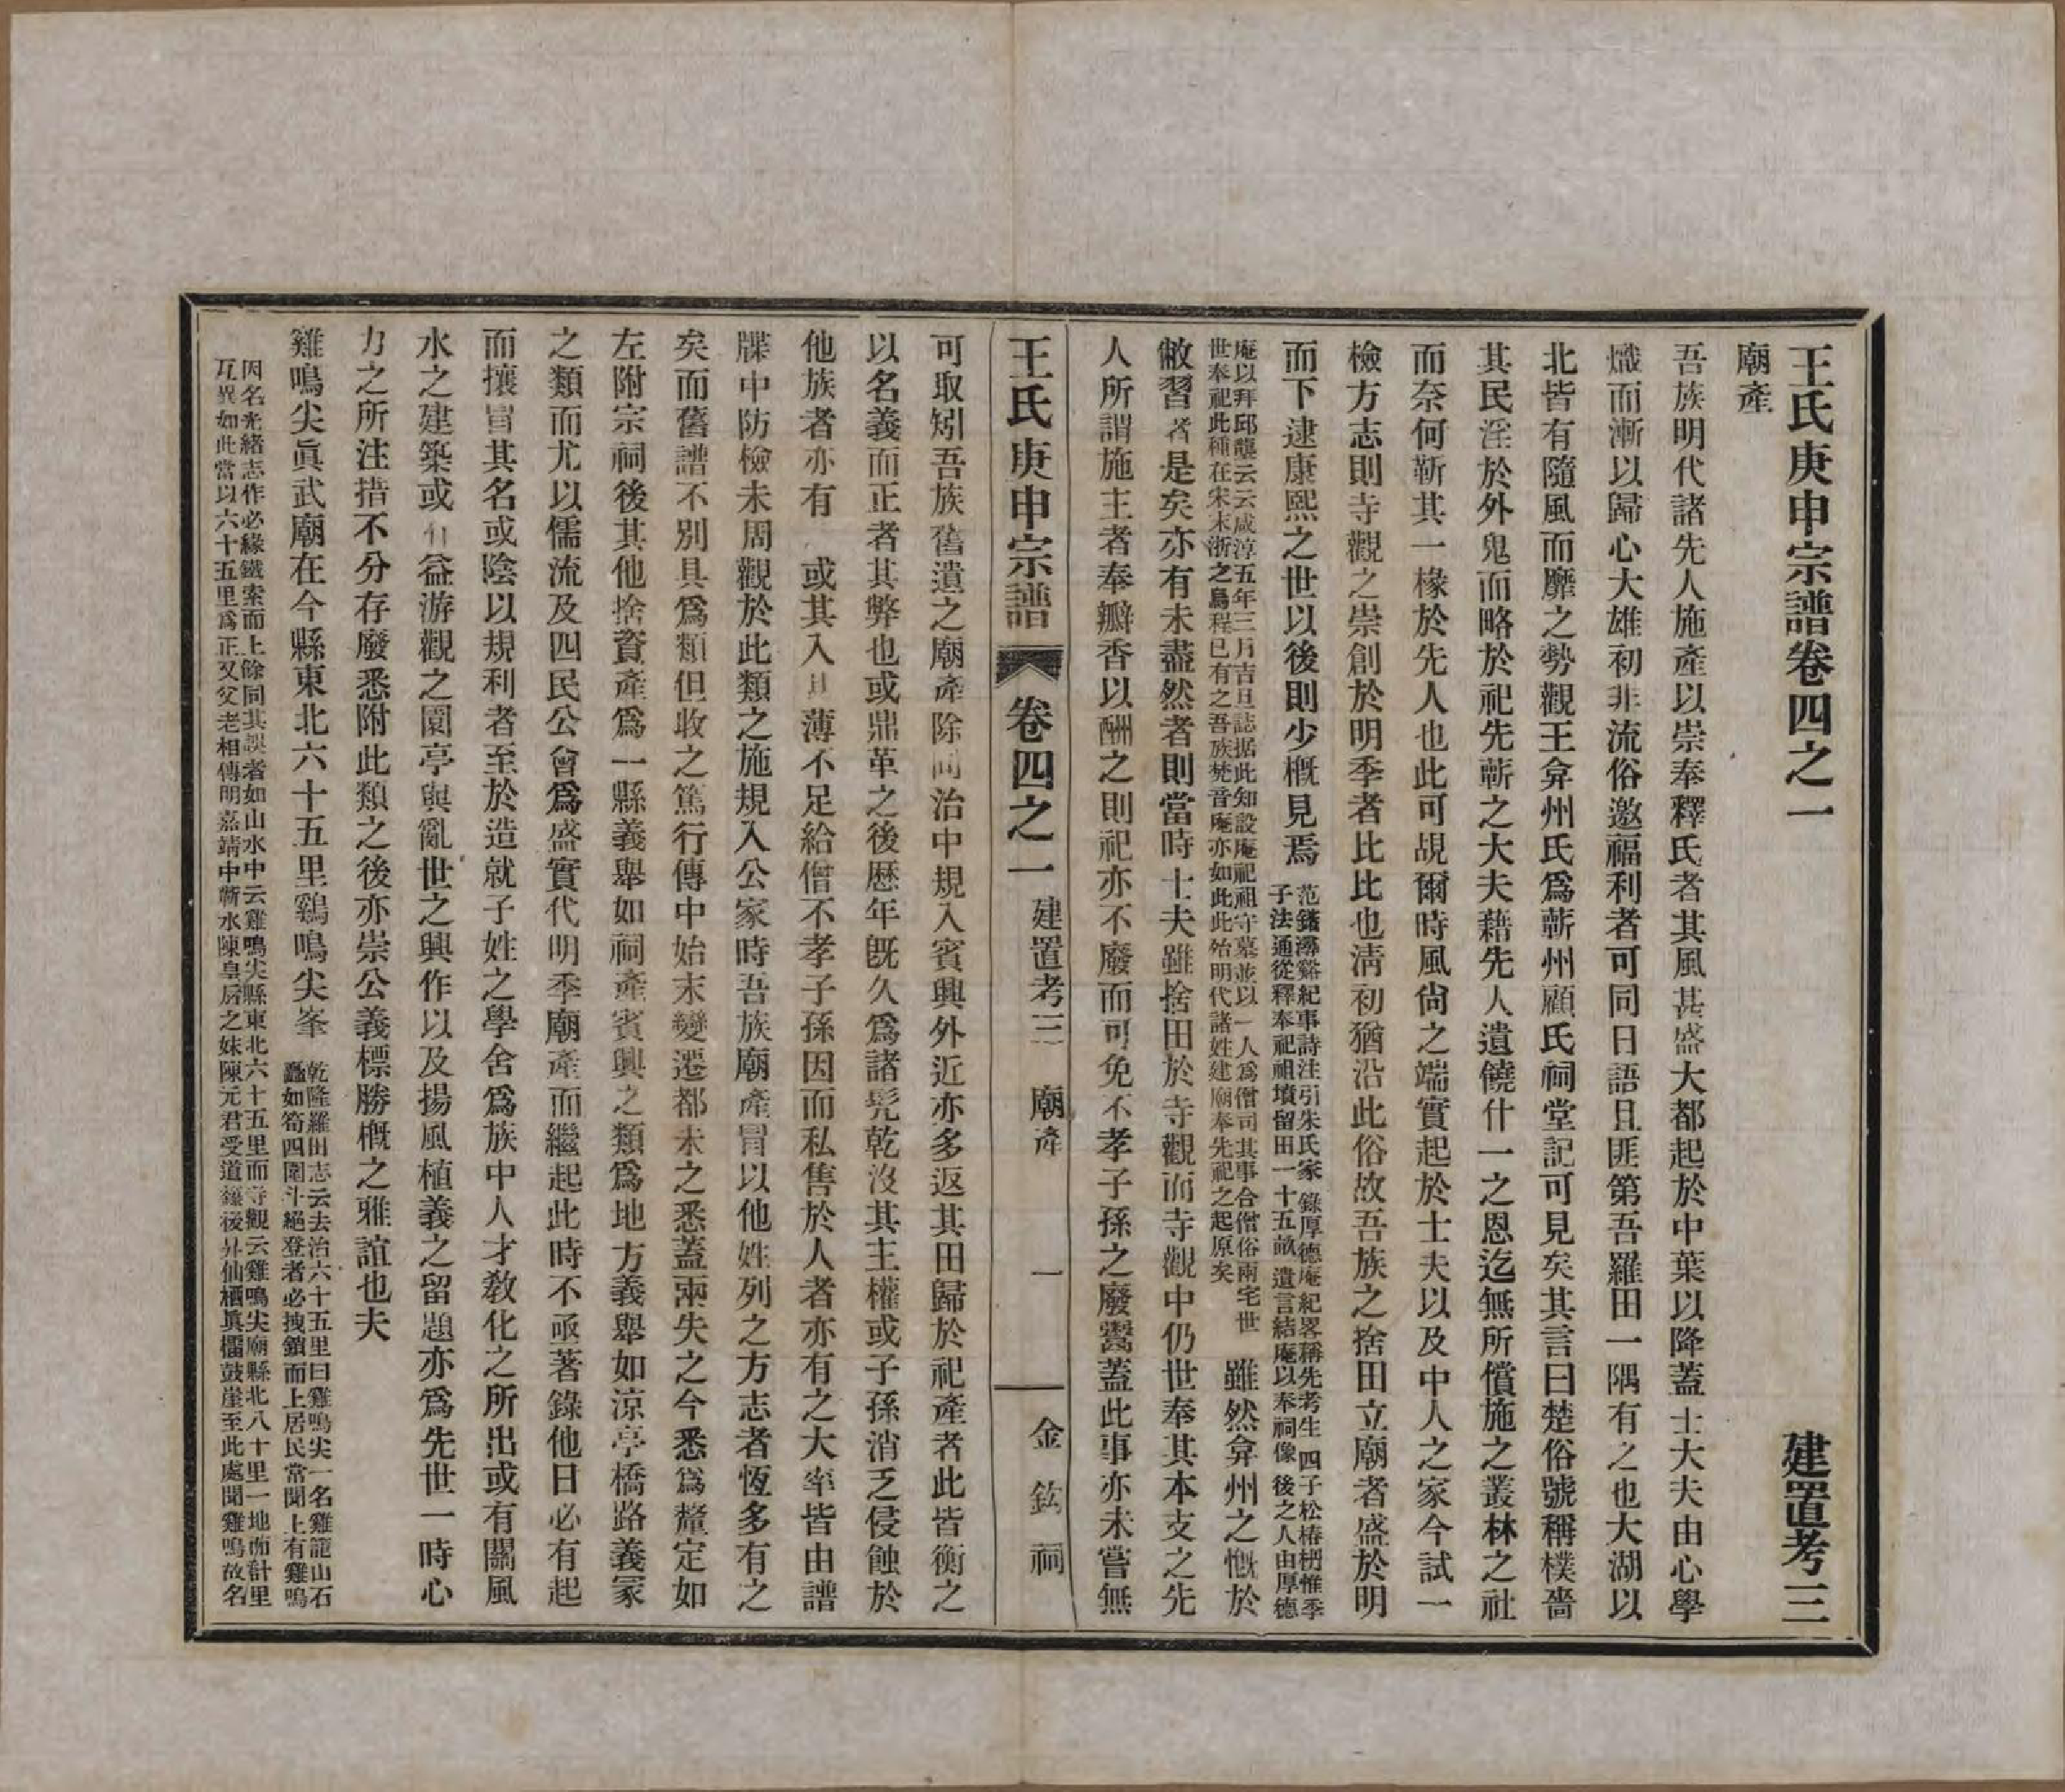 王氏庚申宗譜卷四之一　建置考三
廟產
吾族明代諸先人施產以崇奉釋氏者其風甚盛大都起於中葉以降蓋士大夫由心學
熾而漸以歸心大雄初非流俗邀福利者可同日語且匪第吾羅田一隅有之也大湖以
北皆有隨風而靡之勢觀王弇州氏爲蘄州顧氏祠堂記可見矣其言曰楚俗號稱樸嗇
其民淫於外鬼而略於祀先蘄之大夫藉先人遺饒什一之恩迄無所償施之叢林之社
而奈何靳其一椽於先人也此可覘爾時風尙之端實起於士夫以及中人之家今試一
檢方志則寺觀之崇創於明季者比比也淸初猶沿此俗故吾族之捨田立廟者盛於明
而下逮康熙之世以後則少概見焉
范鍇潯谿紀事詩注引朱氏家錄厚德庵紀畧稱先考生四子松椿枬惟季
子法通從釋奉祀祖墳留田一十五畝遺言結庵以奉祠像後之人由厚德
庵以拜邱壟云云咸淳五年三月吉旦誌据此知設庵祀祖守墓並以一人爲僧司其事合僧俗兩宅世
世奉祀此種在宋末浙之烏程已有之吾族梵音庵亦如此此殆明代諸姓建廟奉先祀之起原矣
雖然弇州之慨於
敝習者是矣亦有未盡然者則當時士夫雖捨田於寺觀而寺觀中仍世奉其本支之先
人所謂施主者奉瓣香以酬之則祀亦不廢而可免不孝子孫之廢鬻蓋此事亦未嘗無
王氏庚申宗譜　卷四之一　建置考三　廟產　一　金鈜祠
可取矧吾族舊遺之廟產除同治中規入賓興外近亦多返其田歸於祀產者此皆衡之
以名義而正者其弊也或鼎革之後歷年既久爲諸髡乾沒其主權或子孫消乏侵蝕於
他族者亦有　或其入　薄不足給僧不孝子孫因而私售於人者亦有之大率皆由譜
牒中防檢未周觀於此類之施規入公家時吾族廟產冒以他姓列之方志者恆多有之
矣而舊譜不別具爲類但收之篤行傳中始末變遷都未之悉蓋兩失之今悉爲釐定如
左附宗祠後其他捨資產爲一縣義舉如祠產賓興之類爲地方義舉如涼亭橋路義冢
之類而尤以儒流及四民公會爲盛實代明季廟產而繼起此時不亟著錄他日必有起
而攘冒其名或陰以規利者至於造就子姓之學舍爲族中人才敎化之所出或有關風
水之建築或有益游觀之園亭與亂世之興作以及揚風植義之留題亦爲先世一時心
力之所注措不分存廢悉附此類之後亦崇公義標勝概之雅誼也夫
雞鳴尖眞武廟在今縣東北六十五里鷄鳴尖峯
乾隆羅田志云去治六十五里曰雞鳴尖一名雞籠山石
矗如筍四圍斗絕登者必拽鎖而上居民常聞上有雞鳴
因名光緒志作必緣鐵索而上餘同其誤者如山水中云雞鳴尖縣東北六十五里而寺觀云雞鳴尖廟縣北八十里一地而計里
互異如此當以六十五里爲正又父老相傳明嘉靖中蘄水陳皇后之妹陳元君受道籙後昇仙栖眞擂鼓崖至此處聞雞鳴故名